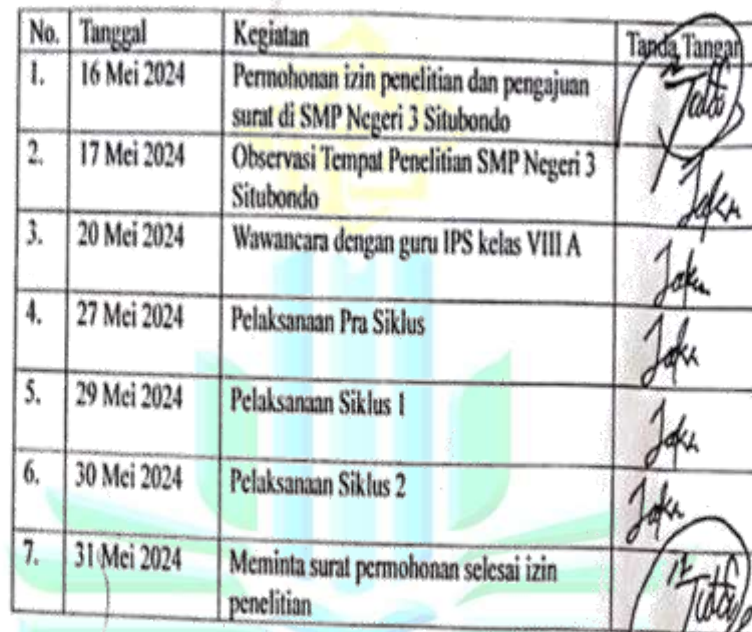 No. Tanggal Kegiatan Tanda Tangan
1. 16 Mei 2024 Permohonan izin penelitian dan pengajuan
surat di SMP Negeri 3 Situbondo
2. 17 Mei 2024 Observasi Tempat Penelitian SMP Negeri 3
Situbondo
3. 20 Mei 2024 Wawancara dengan guru IPS kelas VIII A
4. 27 Mei 2024 Pelaksanaan Pra Siklus
5. 29 Mei 2024 Pelaksanaan Siklus 1
6. 30 Mei 2024 Pelaksanaan Siklus 2
7. 31 Mei 2024 Meminta surat permohonan selesai izin
penelitian